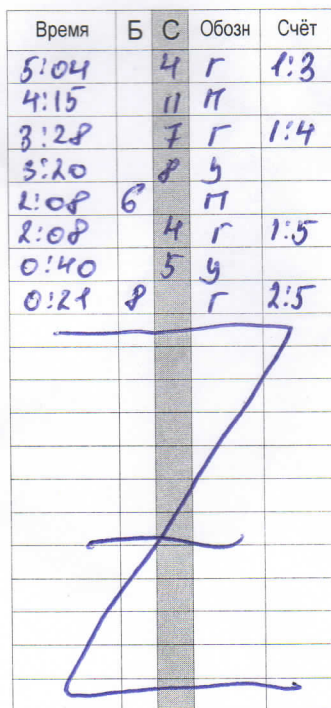 Время Б С Обозн Счёт
5:04 4 Г 1:3
4:15 11 П
3:28 7 Г 1:4
3:20 8 У
2:08 6 П
2:08 4 Г 1:5
0:40 5 У
0:21 8 Г 2:5